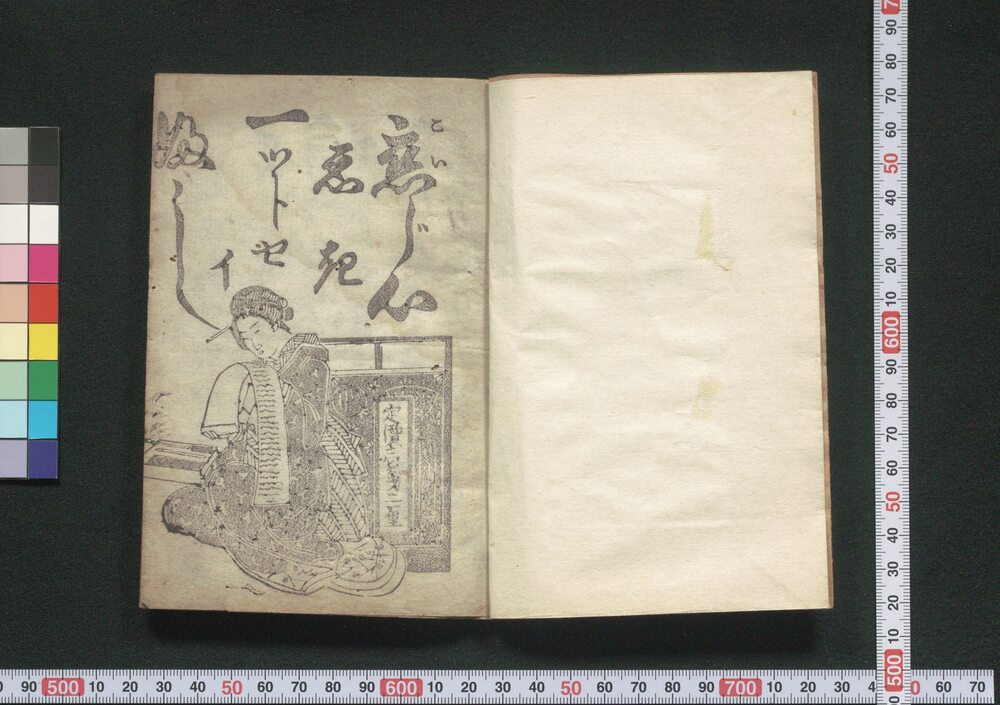 こい
恋じ心
意起
一ツトセイ
婦し
90 80 70 60 50 40 30 20 10 600 90 80 70 60 50 40 30 20 10 500
90 500 10 20 30 40 50 60 70 80 90 600 10 20 30 40 50 60 70 80 90 700 10 20 30 60 70